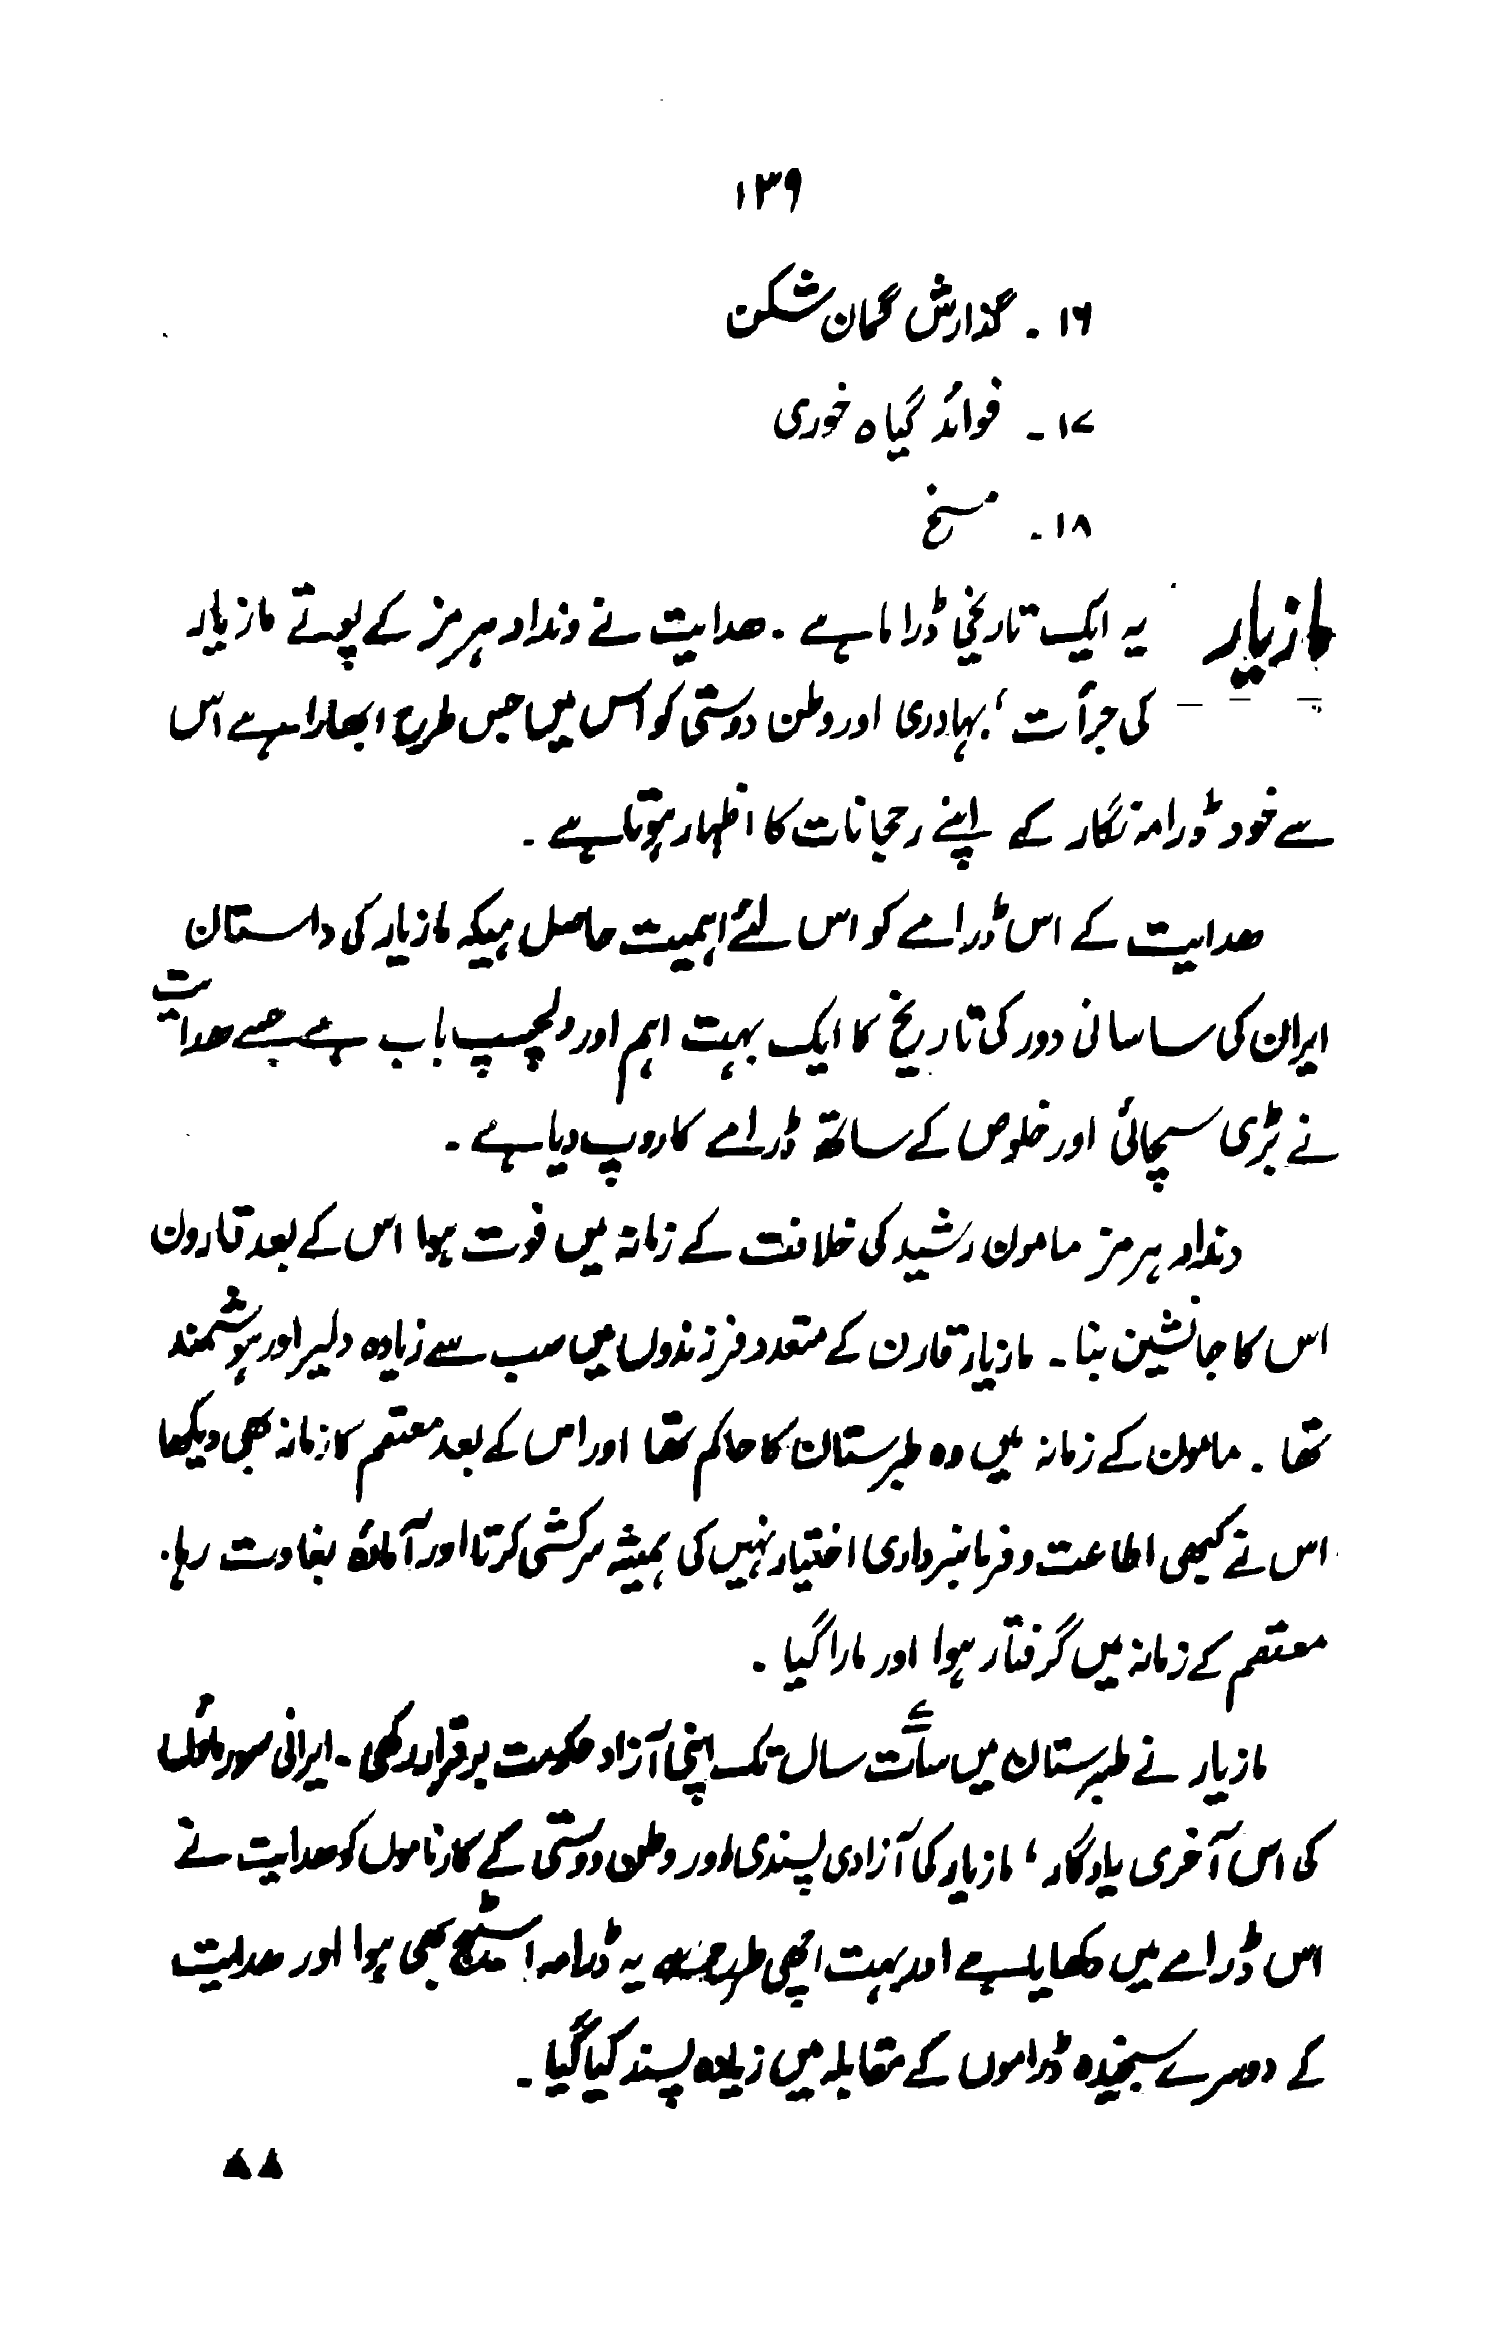 ۱۳۹
۱۶ - گذارش گمان شکن
۱۷ - فوائد گیاہ خوری
۱۸ - مسخ
مازیار یہ ایک تاریخی ڈراما ہے ۔ ھدایت نے ونداد ہرمز کے پوتے مازیار
کی جرأت ‘ بہادری اور وطن دوستی کو اس میں جس طرح ابھارا ہے اس
سے خود ڈرامہ نگار کے اپنے رحجانات کا اظہار ہوتا ہے ۔
ھدایت کے اس ڈرامے کو اس لئے اہمیت حاصل ہیکہ مازیار کی داستان
ایران کی ساسانی دور کی تاریخ کا ایک بہت اہم اور دلچسپ باب ہے جسے ھدایت
نے بڑی سچائی اور خلوص کے ساتھ ڈرامے کا روپ دیا ہے ۔
ونداد ہرمز مامون رشید کی خلافت کے زمانہ میں فوت ہوا اس کے بعد قارون
اس کا جانشین بنا ۔ مازیار قارن کے متعدد فرزندوں میں سب سے زیادہ دلیر اور ہوشمند
تھا ۔ مامون کے زمانہ میں وہ طبرستان کا حاکم تھا اور اس کے بعد معتصم کا زمانہ بھی دیکھا
اس نے کبھی اطاعت و فرمانبرداری اختیار نہیں کی ہمیشہ سرکشی کرتا اور آمادۂ بغاوت رہا۔
معتصم کے زمانہ میں گرفتار ہوا اور مارا گیا ۔
مازیار نے طبرستان میں سات سال تک اپنی آزاد حکومت برقرار رکھی ۔ ایرانی سورماؤں
کی اس آخری یادگار ‘ مازیار کی آزادی پسندی اور وطن دوستی کے کارناموں کو ھدایت نے
اس ڈرامے میں دکھایا ہے اور بہت اچھی طرح سے یہ ڈرامہ اسٹیج بھی ہوا اور ھدایت
کے دوسرے سنجیدہ ڈراموں کے مقابلہ میں زیادہ پسند کیا گیا ۔